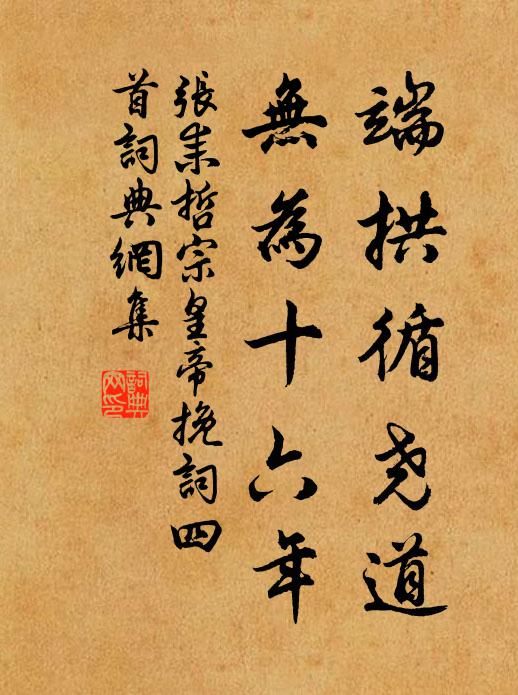 端拱循尧道
無為十六年
張耒哲宗皇帝挽詞四
首詞典網集
詞典
网印